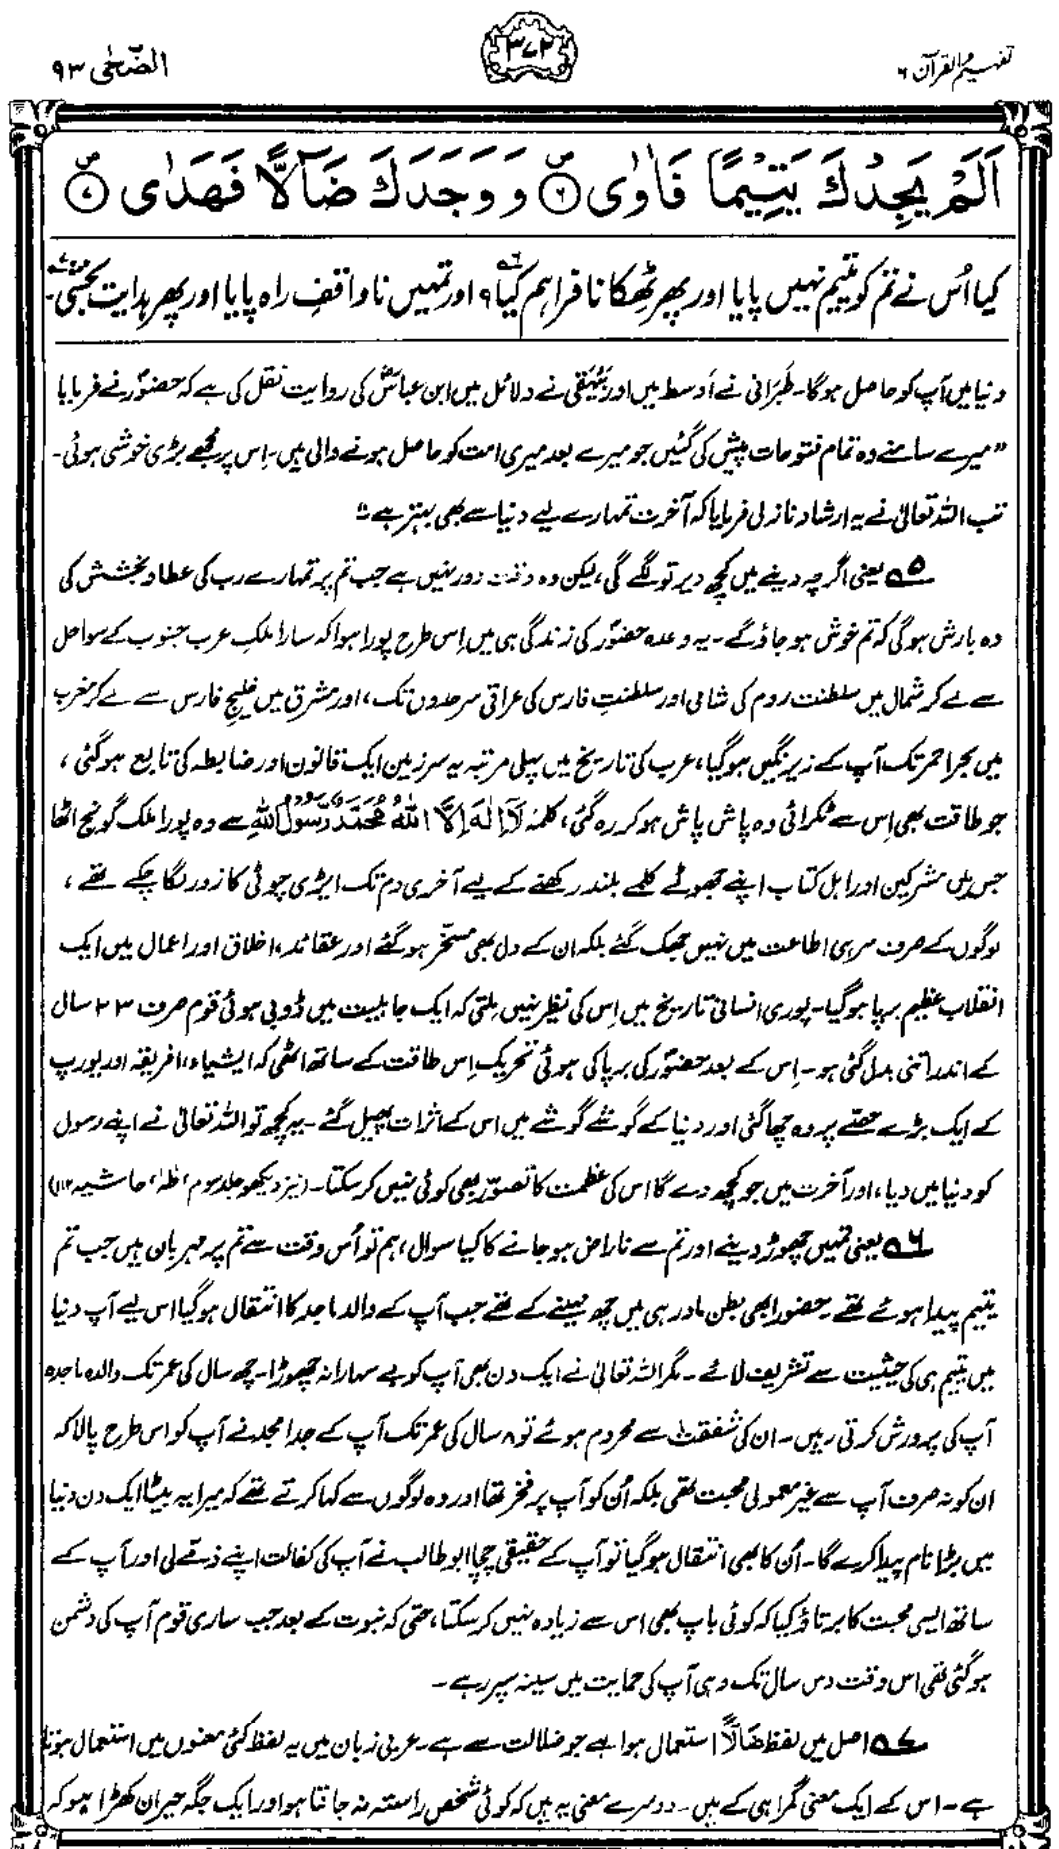 تفہیم القرآن ۶
۳۷۲
الضّحٰی ۹۳
اَلَمْ يَجِدْكَ يَتِيْمًا فَاٰوٰى ۝۶ وَوَجَدَكَ ضَآلًّا فَهَدٰى ۝۷
کیا اُس نے تم کو یتیم نہیں پایا اور پھر ٹھکانا فراہم کیا؟۶ اور تمہیں ناواقفِ راہ پایا اور پھر ہدایت بخشی۷۔
دنیا میں آپ کو حاصل ہوگا۔ طَبَرانی نے اَوسط میں اور بَیْہَقی نے دلائل میں ابن عباسؓ کی روایت نقل کی ہے کہ حضورؐ نے فرمایا
”میرے سامنے وہ تمام فتوحات پیش کی گئیں جو میرے بعد میری امت کو حاصل ہونے والی ہیں۔ اِس پر مجھے بڑی خوشی ہوئی۔
تب اللہ تعالیٰ نے یہ ارشاد نازل فرمایا کہ آخرت تمہارے لیے دنیا سے بھی بہتر ہے“۔
۵ یعنی اگرچہ دینے میں کچھ دیر تو لگے گی، لیکن وہ وقت دور نہیں ہے جب تم پر تمہارے رب کی عطا و بخشش کی
وہ بارش ہوگی کہ تم خوش ہو جاؤ گے۔ یہ وعدہ حضورؐ کی زندگی ہی میں اِس طرح پورا ہوا کہ سارا ملکِ عرب جنوب کے سواحل
سے لے کر شمال میں سلطنت روم کی شامی اور سلطنتِ فارس کی عراقی سرحدوں تک، اور مشرق میں خلیج فارس سے لے کر مغرب
میں بحر احمر تک آپ کے زیر نگیں ہوگیا، عرب کی تاریخ میں پہلی مرتبہ یہ سرزمین ایک قانون اور ضابطہ کی تابع ہوگئی،
جو طاقت بھی اِس سے ٹکرائی وہ پاش پاش ہو کر رہ گئی، کلمۂ لَآ اِلٰهَ اِلَّا اللّٰهُ مُحَمَّدٌ رَّسُوْلُ اللّٰهِ سے وہ پورا ملک گونج اٹھا
جس میں مشرکین اور اہل کتاب اپنے جھوٹے کلمے بلند رکھنے کے لیے آخری دم تک ایڑی چوٹی کا زور لگا چکے تھے،
لوگوں کے صرف سر ہی اطاعت میں نہیں جھک گئے بلکہ ان کے دل بھی مسخّر ہوگئے اور عقائد، اخلاق اور اعمال میں ایک
انقلاب عظیم برپا ہوگیا۔ پوری انسانی تاریخ میں اِس کی نظیر نہیں ملتی کہ ایک جاہلیت میں ڈوبی ہوئی قوم صرف ۲۳ سال
کے اندر اتنی بدل گئی ہو۔ اِس کے بعد حضورؐ کی برپا کی ہوئی تحریک اِس طاقت کے ساتھ اٹھی کہ ایشیاء، افریقہ اور یورپ
کے ایک بڑے حصّے پر وہ چھا گئی اور دنیا کے گوشے گوشے میں اس کے اثرات پھیل گئے۔ یہ کچھ تو اللہ تعالیٰ نے اپنے رسول
کو دنیا میں دیا، اور آخرت میں جو کچھ دے گا اس کی عظمت کا تصوّر بھی کوئی نہیں کر سکتا۔ (نیز دیکھو جلد سوم، طٰہٰ، حاشیہ ۱۱۲)
۶ یعنی تمہیں چھوڑ دینے اور تم سے ناراض ہو جانے کا کیا سوال، ہم تو اُس وقت سے تم پر مہربان ہیں جب تم
یتیم پیدا ہوئے تھے۔ حضورؐ ابھی بطن مادر ہی میں چھ مہینے کے تھے جب آپ کے والد ماجد کا انتقال ہوگیا اس لیے آپ دنیا
میں یتیم ہی کی حیثیت سے تشریف لائے۔ مگر اللہ تعالیٰ نے ایک دن بھی آپ کو بے سہارا نہ چھوڑا۔ چھ سال کی عمر تک والدہ ماجدہ
آپ کی پرورش کرتی رہیں۔ ان کی شفقت سے محروم ہوئے تو ۸ سال کی عمر تک آپ کے جد امجد نے آپ کو اس طرح پالا کہ
ان کو نہ صرف آپ سے غیر معمولی محبت تھی بلکہ اُن کو آپ پر فخر تھا اور وہ لوگوں سے کہا کرتے تھے کہ میرا یہ بیٹا ایک دن دنیا
میں بڑا نام پیدا کرے گا۔ اُن کا بھی انتقال ہوگیا تو آپ کے حقیقی چچا ابو طالب نے آپ کی کفالت اپنے ذمّے لی اور آپ کے
ساتھ ایسی محبت کا برتاؤ کیا کہ کوئی باپ بھی اس سے زیادہ نہیں کر سکتا، حتی کہ نبوت کے بعد جب ساری قوم آپ کی دشمن
ہوگئی تھی اس وقت دس سال تک وہی آپ کی حمایت میں سینہ سپر رہے۔
۷ اصل میں لفظ ضَآلًّا استعمال ہوا ہے جو ضلالت سے ہے۔ عربی زبان میں یہ لفظ کئی معنوں میں استعمال ہوتا
ہے۔ اس کے ایک معنی گمراہی کے ہیں۔ دوسرے معنی یہ ہیں کہ کوئی شخص راستہ نہ جانتا ہو اور ایک جگہ حیران کھڑا ہو کہ